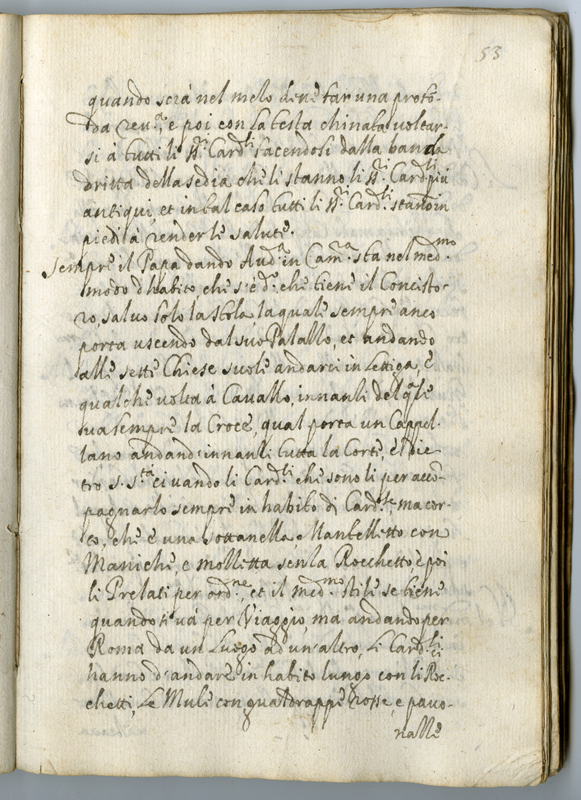 53
quando serà nel melo deve far una profo-
da reu.ª, e poi con la testa chinata voltar-
si à tutti li SS.ri Card.li facendosi dalla banda
dritta della sedia che li stanno li SS.ri Card.li più
antiqui et in tal caso tutti li SS.ri Card.li stanno in
piedi à renderli salute.
Sempre il Papa dando Aud.ª in Cam.ª sta nel med.mo
modo d'habito, che s'è d.º che tiene il Concisto-
ro, salvo solo la stola, la quale sempre anco
porta uscendo dal suo Palallo, et andando
alle sette Chiese suole andarci in Lettiga, è
qualche volta à Cavallo, innanli del q.le
va sempre la Croce, qual porta un Cappel-
lano andand. innanli tutta la Corte, et die-
tro S. S.ta ci vando li Card.li che sono li per acco-
pagnarlo sempre in habito di Card.le, ma cor-
to, che è una sottanella, e Mantelletto con
Maniche, e molletta senla Rocchetto è poi
li Prelati per ord.ne, et il med.mo stile se tiene
quando si và per Viaggio, ma andando per
Roma da un Luogo ad un'altro, li Card.li ci
hanno d'andare in habito lungo con li Roc-
chetti, Le Mule con gualdrappe rosse, e pavo-
nalle